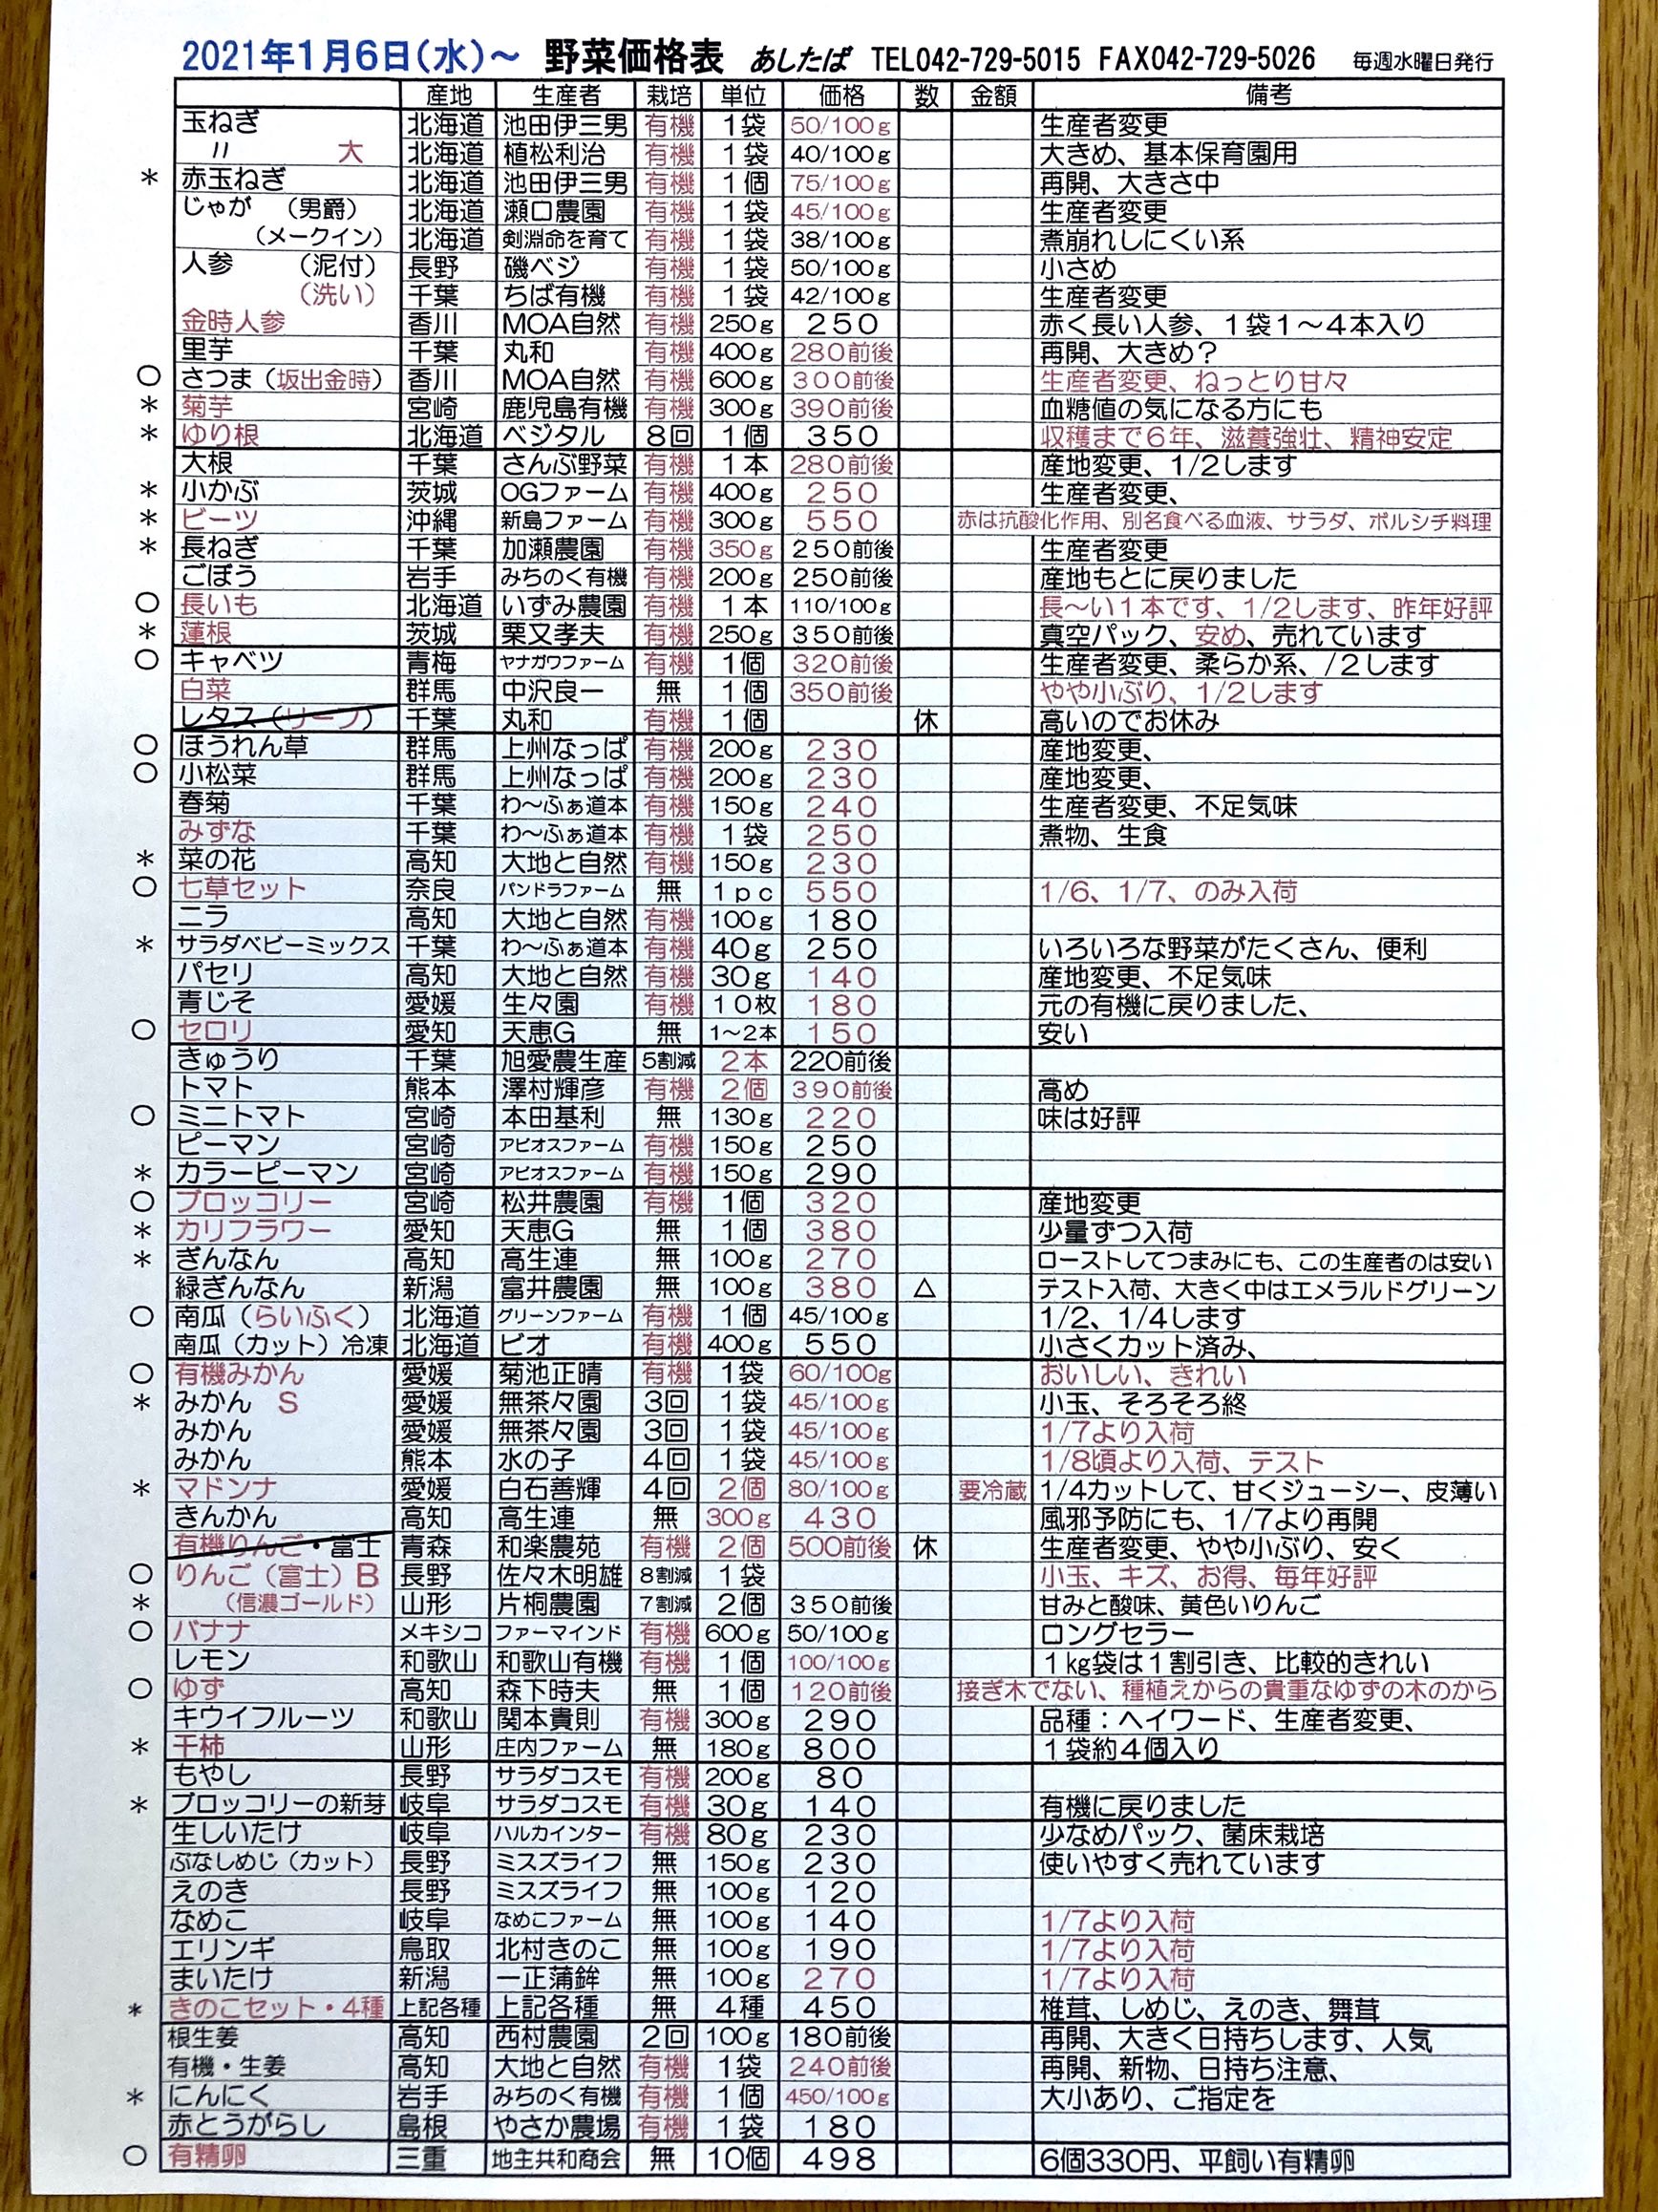 2021年1月6日(水)～ 野菜価格表 あしたば TEL042-729-5015 FAX042-729-5026 毎週水曜日発行
産地 生産者 栽培 単位 価格 数 金額 備考
玉ねぎ 北海道 池田伊三男 有機 1袋 50/100g 生産者変更
〃 大 北海道 植松利治 有機 1袋 40/100g 大きめ、基本保育園用
* 赤玉ねぎ 北海道 池田伊三男 有機 1個 75/100g 再開、大きさ中
じゃが (男爵) 北海道 瀬口農園 有機 1袋 45/100g 生産者変更
(メークイン) 北海道 剣淵命を育て 有機 1袋 38/100g 煮崩れしにくい系
人参 (泥付) 長野 磯ベジ 有機 1袋 50/100g 小さめ
(洗い) 千葉 ちば有機 有機 1袋 42/100g 生産者変更
金時人参 香川 MOA自然 有機 250g 250 赤く長い人参、1袋1～4本入り
里芋 千葉 丸和 有機 400g 280前後 再開、大きめ？
○ さつま(坂出金時) 香川 MOA自然 有機 600g 300前後 生産者変更、ねっとり甘々
* 菊芋 宮崎 鹿児島有機 有機 300g 390前後 血糖値の気になる方にも
* ゆり根 北海道 ベジタル 8回 1個 350 収穫まで6年、滋養強壮、精神安定
大根 千葉 さんぶ野菜 有機 1本 280前後 産地変更、1/2します
* 小かぶ 茨城 OGファーム 有機 400g 250 生産者変更、
* ビーツ 沖縄 新島ファーム 有機 300g 550 赤は抗酸化作用、別名食べる血液、サラダ、ボルシチ料理
* 長ねぎ 千葉 加瀬農園 有機 350g 250前後 生産者変更
ごぼう 岩手 みちのく有機 有機 200g 250前後 産地もとに戻りました
○ 長いも 北海道 いずみ農園 有機 1本 110/100g 長～い1本です、1/2します、昨年好評
* 蓮根 茨城 栗又孝夫 有機 250g 350前後 真空パック、安め、売れています
○ キャベツ 青梅 ヤナガワファーム 有機 1個 320前後 生産者変更、柔らか系、/2します
白菜 群馬 中沢良一 無 1個 350前後 やや小ぶり、1/2します
レタス(リーフ) 千葉 丸和 有機 1個 休 高いのでお休み
○ ほうれん草 群馬 上州なっぱ 有機 200g 230 産地変更、
○ 小松菜 群馬 上州なっぱ 有機 200g 230 産地変更、
春菊 千葉 わ～ふぁ道本 有機 150g 240 生産者変更、不足気味
みずな 千葉 わ～ふぁ道本 有機 1袋 250 煮物、生食
* 菜の花 高知 大地と自然 有機 150g 230
○ 七草セット 奈良 パンドラファーム 無 1pc 550 1/6、1/7、のみ入荷
ニラ 高知 大地と自然 有機 100g 180
* サラダベビーミックス 千葉 わ～ふぁ道本 有機 40g 250 いろいろな野菜がたくさん、便利
パセリ 高知 大地と自然 有機 30g 140 産地変更、不足気味
青じそ 愛媛 生々園 有機 10枚 180 元の有機に戻りました、
○ セロリ 愛知 天恵G 無 1～2本 150 安い
きゅうり 千葉 旭愛農生産 5割減 2本 220前後
トマト 熊本 澤村輝彦 有機 2個 390前後 高め
○ ミニトマト 宮崎 本田基利 無 130g 220 味は好評
ピーマン 宮崎 アピオスファーム 有機 150g 250
* カラーピーマン 宮崎 アピオスファーム 有機 150g 290
○ ブロッコリー 宮崎 松井農園 有機 1個 320 産地変更
* カリフラワー 愛知 天恵G 無 1個 380 少量ずつ入荷
* ぎんなん 高知 高生連 無 100g 270 ローストしてつまみにも、この生産者のは安い
緑ぎんなん 新潟 富井農園 無 100g 380 △ テスト入荷、大きく中はエメラルドグリーン
○ 南瓜(らいふく) 北海道 グリーンファーム 有機 1個 45/100g 1/2、1/4します
南瓜(カット)冷凍 北海道 ビオ 有機 400g 550 小さくカット済み、
○ 有機みかん 愛媛 菊池正晴 有機 1袋 60/100g おいしい、きれい
* みかん S 愛媛 無茶々園 3回 1袋 45/100g 小玉、そろそろ終
みかん 愛媛 無茶々園 3回 1袋 45/100g 1/7より入荷
みかん 熊本 水の子 4回 1袋 45/100g 1/8頃より入荷、テスト
* マドンナ 愛媛 白石善輝 4回 2個 80/100g 要冷蔵 1/4カットして、甘くジューシー、皮薄い
きんかん 高知 高生連 無 300g 430 風邪予防にも、1/7より再開
有機りんご・富士 青森 和楽農苑 有機 2個 500前後 休 生産者変更、やや小ぶり、安く
○ りんご(富士)B 長野 佐々木明雄 8割減 1袋 小玉、キズ、お得、毎年好評
* (信濃ゴールド) 山形 片桐農園 7割減 2個 350前後 甘みと酸味、黄色いりんご
○ バナナ メキシコ ファーマインド 有機 600g 50/100g ロングセラー
レモン 和歌山 和歌山有機 有機 1個 100/100g 1kg袋は1割引き、比較的きれい
○ ゆず 高知 森下時夫 無 1個 120前後 接ぎ木でない、種植えからの貴重なゆずの木のから
キウイフルーツ 和歌山 関本貴則 有機 300g 290 品種：ヘイワード、生産者変更、
* 干柿 山形 庄内ファーム 無 180g 800 1袋約4個入り
もやし 長野 サラダコスモ 有機 200g 80
* ブロッコリーの新芽 岐阜 サラダコスモ 有機 30g 140 有機に戻りました
生しいたけ 岐阜 ハルカインター 有機 80g 230 少なめパック、菌床栽培
ぶなしめじ(カット) 長野 ミスズライフ 無 150g 230 使いやすく売れています
えのき 長野 ミスズライフ 無 100g 120
なめこ 岐阜 なめこファーム 無 100g 140 1/7より入荷
エリンギ 鳥取 北村きのこ 無 100g 190 1/7より入荷
まいたけ 新潟 一正蒲鉾 無 100g 270 1/7より入荷
* きのこセット・4種 上記各種 上記各種 無 4種 450 椎茸、しめじ、えのき、舞茸
根生姜 高知 西村農園 2回 100g 180前後 再開、大きく日持ちします、人気
有機・生姜 高知 大地と自然 有機 1袋 240前後 再開、新物、日持ち注意、
* にんにく 岩手 みちのく有機 有機 1個 450/100g 大小あり、ご指定を
赤とうがらし 島根 やさか農場 有機 1袋 180
○ 有精卵 三重 地主共和商会 無 10個 498 6個330円、平飼い有精卵